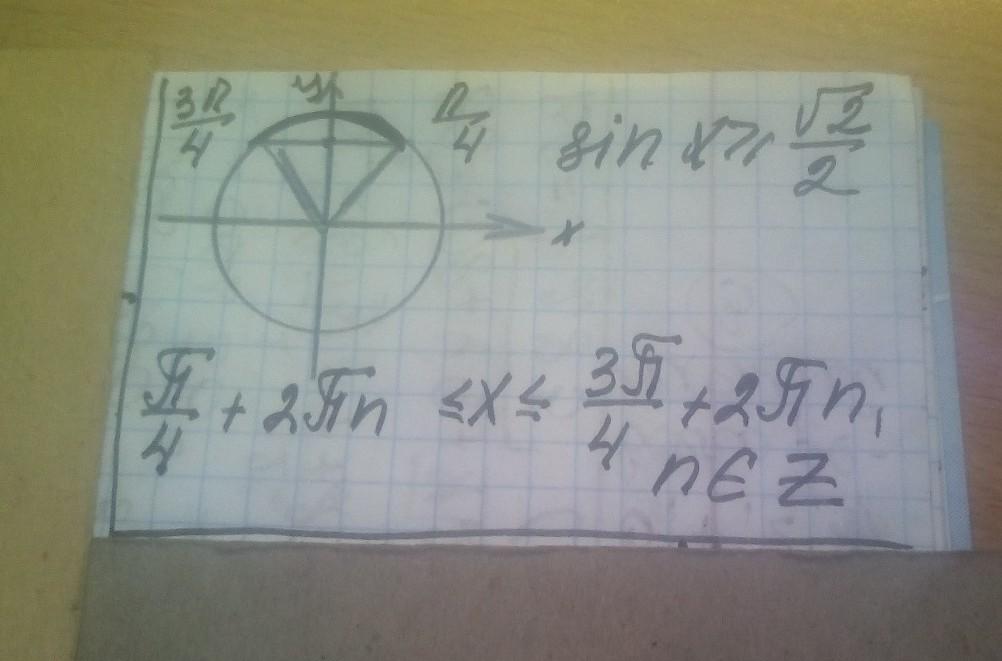 3π/4 y π/4 sin x ⩾ √2/2
x
π/4 + 2πn ≤ x ≤ 3π/4 + 2πn,
n ∈ Z